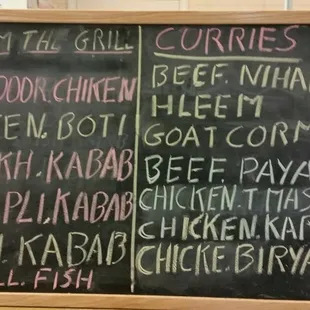 M THE GRILL
OODR.CHIKEN
EN.BOTI
KH.KABAB
PLI.KABAB
KABAB
LL.FISH
CURRIES
BEEF.NIHA
HLEEM
GOAT CORM
BEEF.PAYA
CHICKEN.T MAS
CHICKEN.KAR
CHICKE.BIRYA